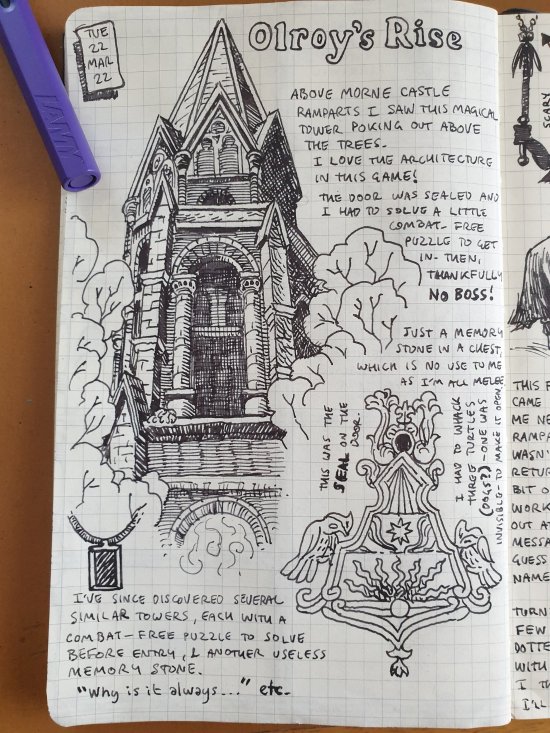 LAMY
TUE
22
MAR
22
Olroy's Rise
ABOVE MORNE CASTLE
RAMPARTS I SAW THIS MAGICAL
TOWER POKING OUT ABOVE
THE TREES.
I LOVE THE ARCHITECTURE
IN THIS GAME!
THE DOOR WAS SEALED AND
I HAD TO SOLVE A LITTLE
COMBAT-FREE
PUZZLE TO GET
IN. THEN,
THANKFULLY
NO BOSS!
JUST A MEMORY
STONE IN A CHEST,
WHICH IS NO USE TO ME
AS I'M ALL MELEE
THIS WAS THE
SEAL ON THE
DOOR.
I HAD TO WHACK
THREE TURTLES
(DOGS?) - ONE WAS
INVISIBLE - TO MAKE IT OPEN.
I'VE SINCE DISCOVERED SEVERAL
SIMILAR TOWERS, EACH WITH A
COMBAT-FREE PUZZLE TO SOLVE
BEFORE ENTRY, & ANOTHER USELESS
MEMORY STONE.
"Why is it always..." etc.
SCARY
THIS
CAME
ME
WASN'
BIT
WORK
OUT
GUESS
NAME
TURN
FEW
DOTTE
WITH
I
I'LL